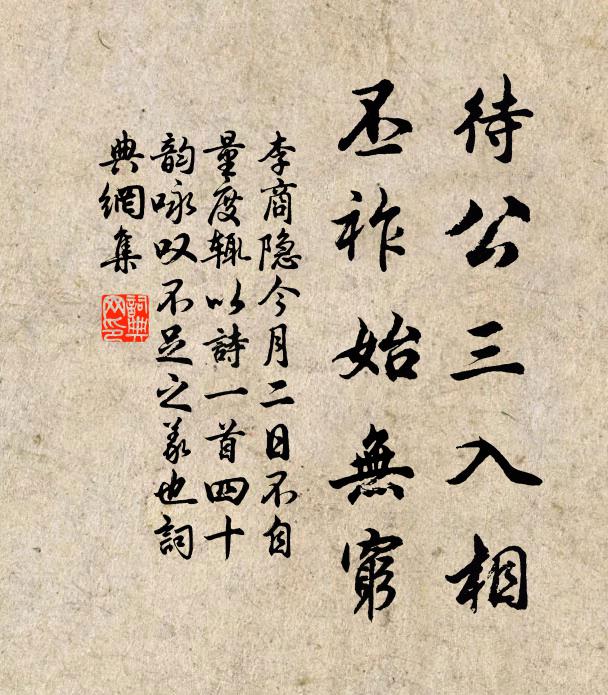 待公三入相
丕祚始無窮
李商隐今月二日不自
量度輒以詩一首四十
韵咏叹不足之義也詞
典網集
詞典
网印